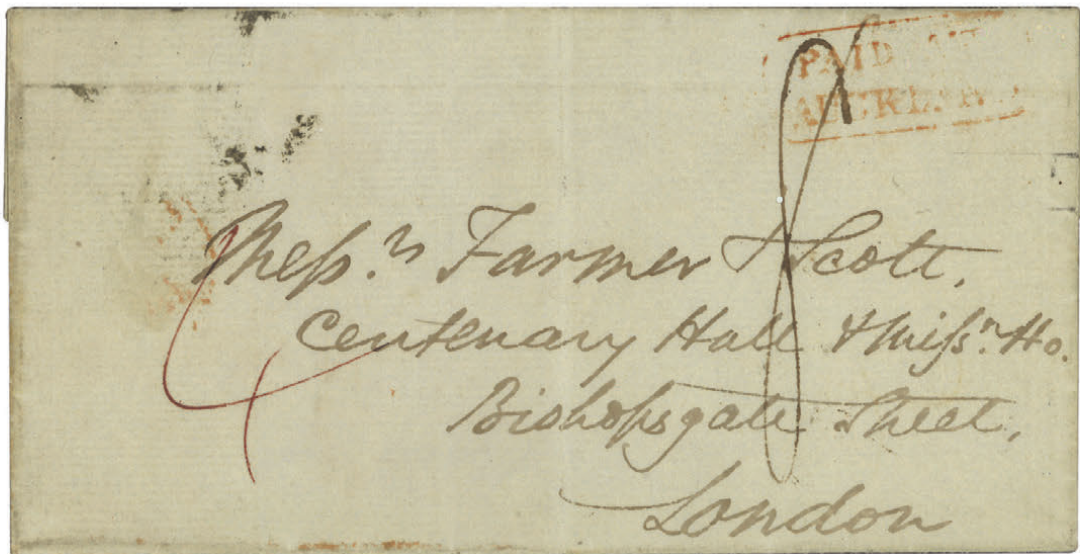 PAID AT
AUCKLAND
4
8
Mess.rs Farmer & Scott,
Centenary Hall & Miss.n Ho.
Bishopsgate Street,
London